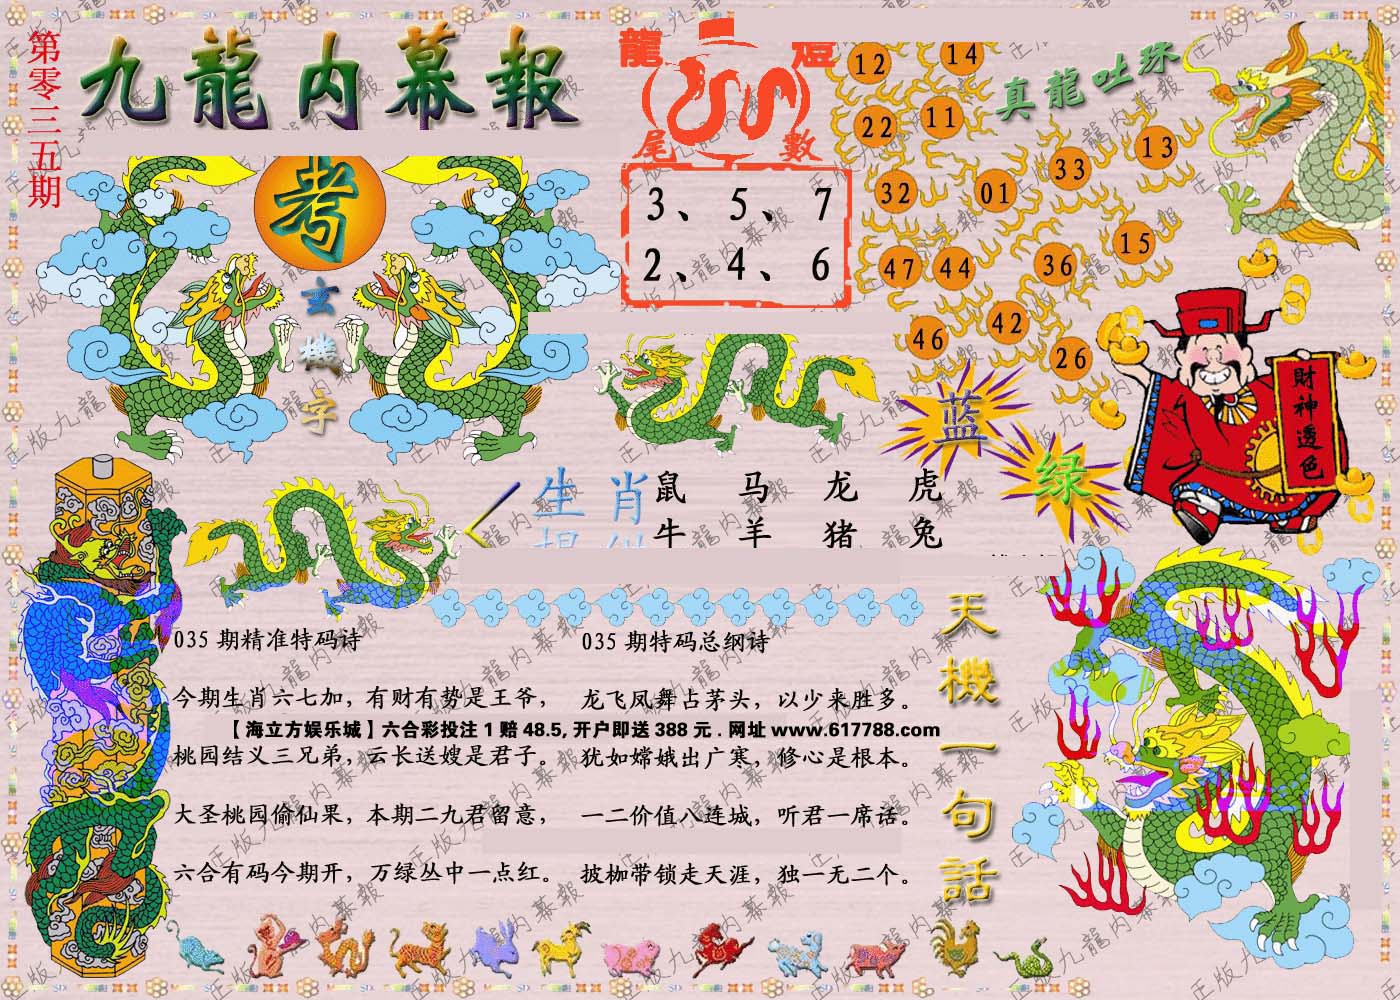 第零三五期
九龍内幕報
龍 燈
尾 數
3、5、7
2、4、6
12
14
22
11
真龍吐珠
13
33
32
01
15
47
44
36
46
42
26
考
玄機字
蓝
绿
財神透色
生肖
鼠 马 龙 虎
牛 羊 猪 兔
天機一句話
035 期精准特码诗
今期生肖六七加，有财有势是王爷，
桃园结义三兄弟，云长送嫂是君子。
大圣桃园偷仙果，本期二九君留意，
六合有码今期开，万绿丛中一点红。
035 期特码总纲诗
龙飞凤舞占茅头，以少来胜多。
犹如嫦娥出广寒，修心是根本。
一二价值八连城，听君一席话。
披枷带锁走天涯，独一无二个。
【海立方娱乐城】六合彩投注 1 赔 48.5, 开户即送 388 元 . 网址 www.617788.com
正版九龍内幕報